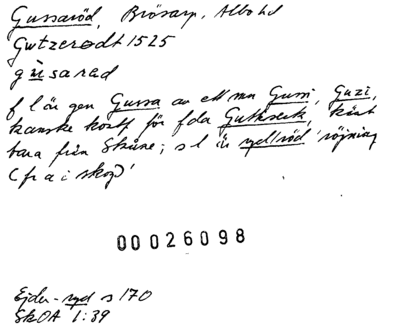 Gussaröd, Brösarp, Albo hd
Gutzerødt 1525
gùsarad
f l är gen Gussa av ett mn Gussi, Guzi,
kanske kortf för fda Guthserk, känt
bara från Skåne; s l är ryd/röd 'röjning
(fr a i skog)'
00026098
Ejder-ryd s 170
SkOA 1:39